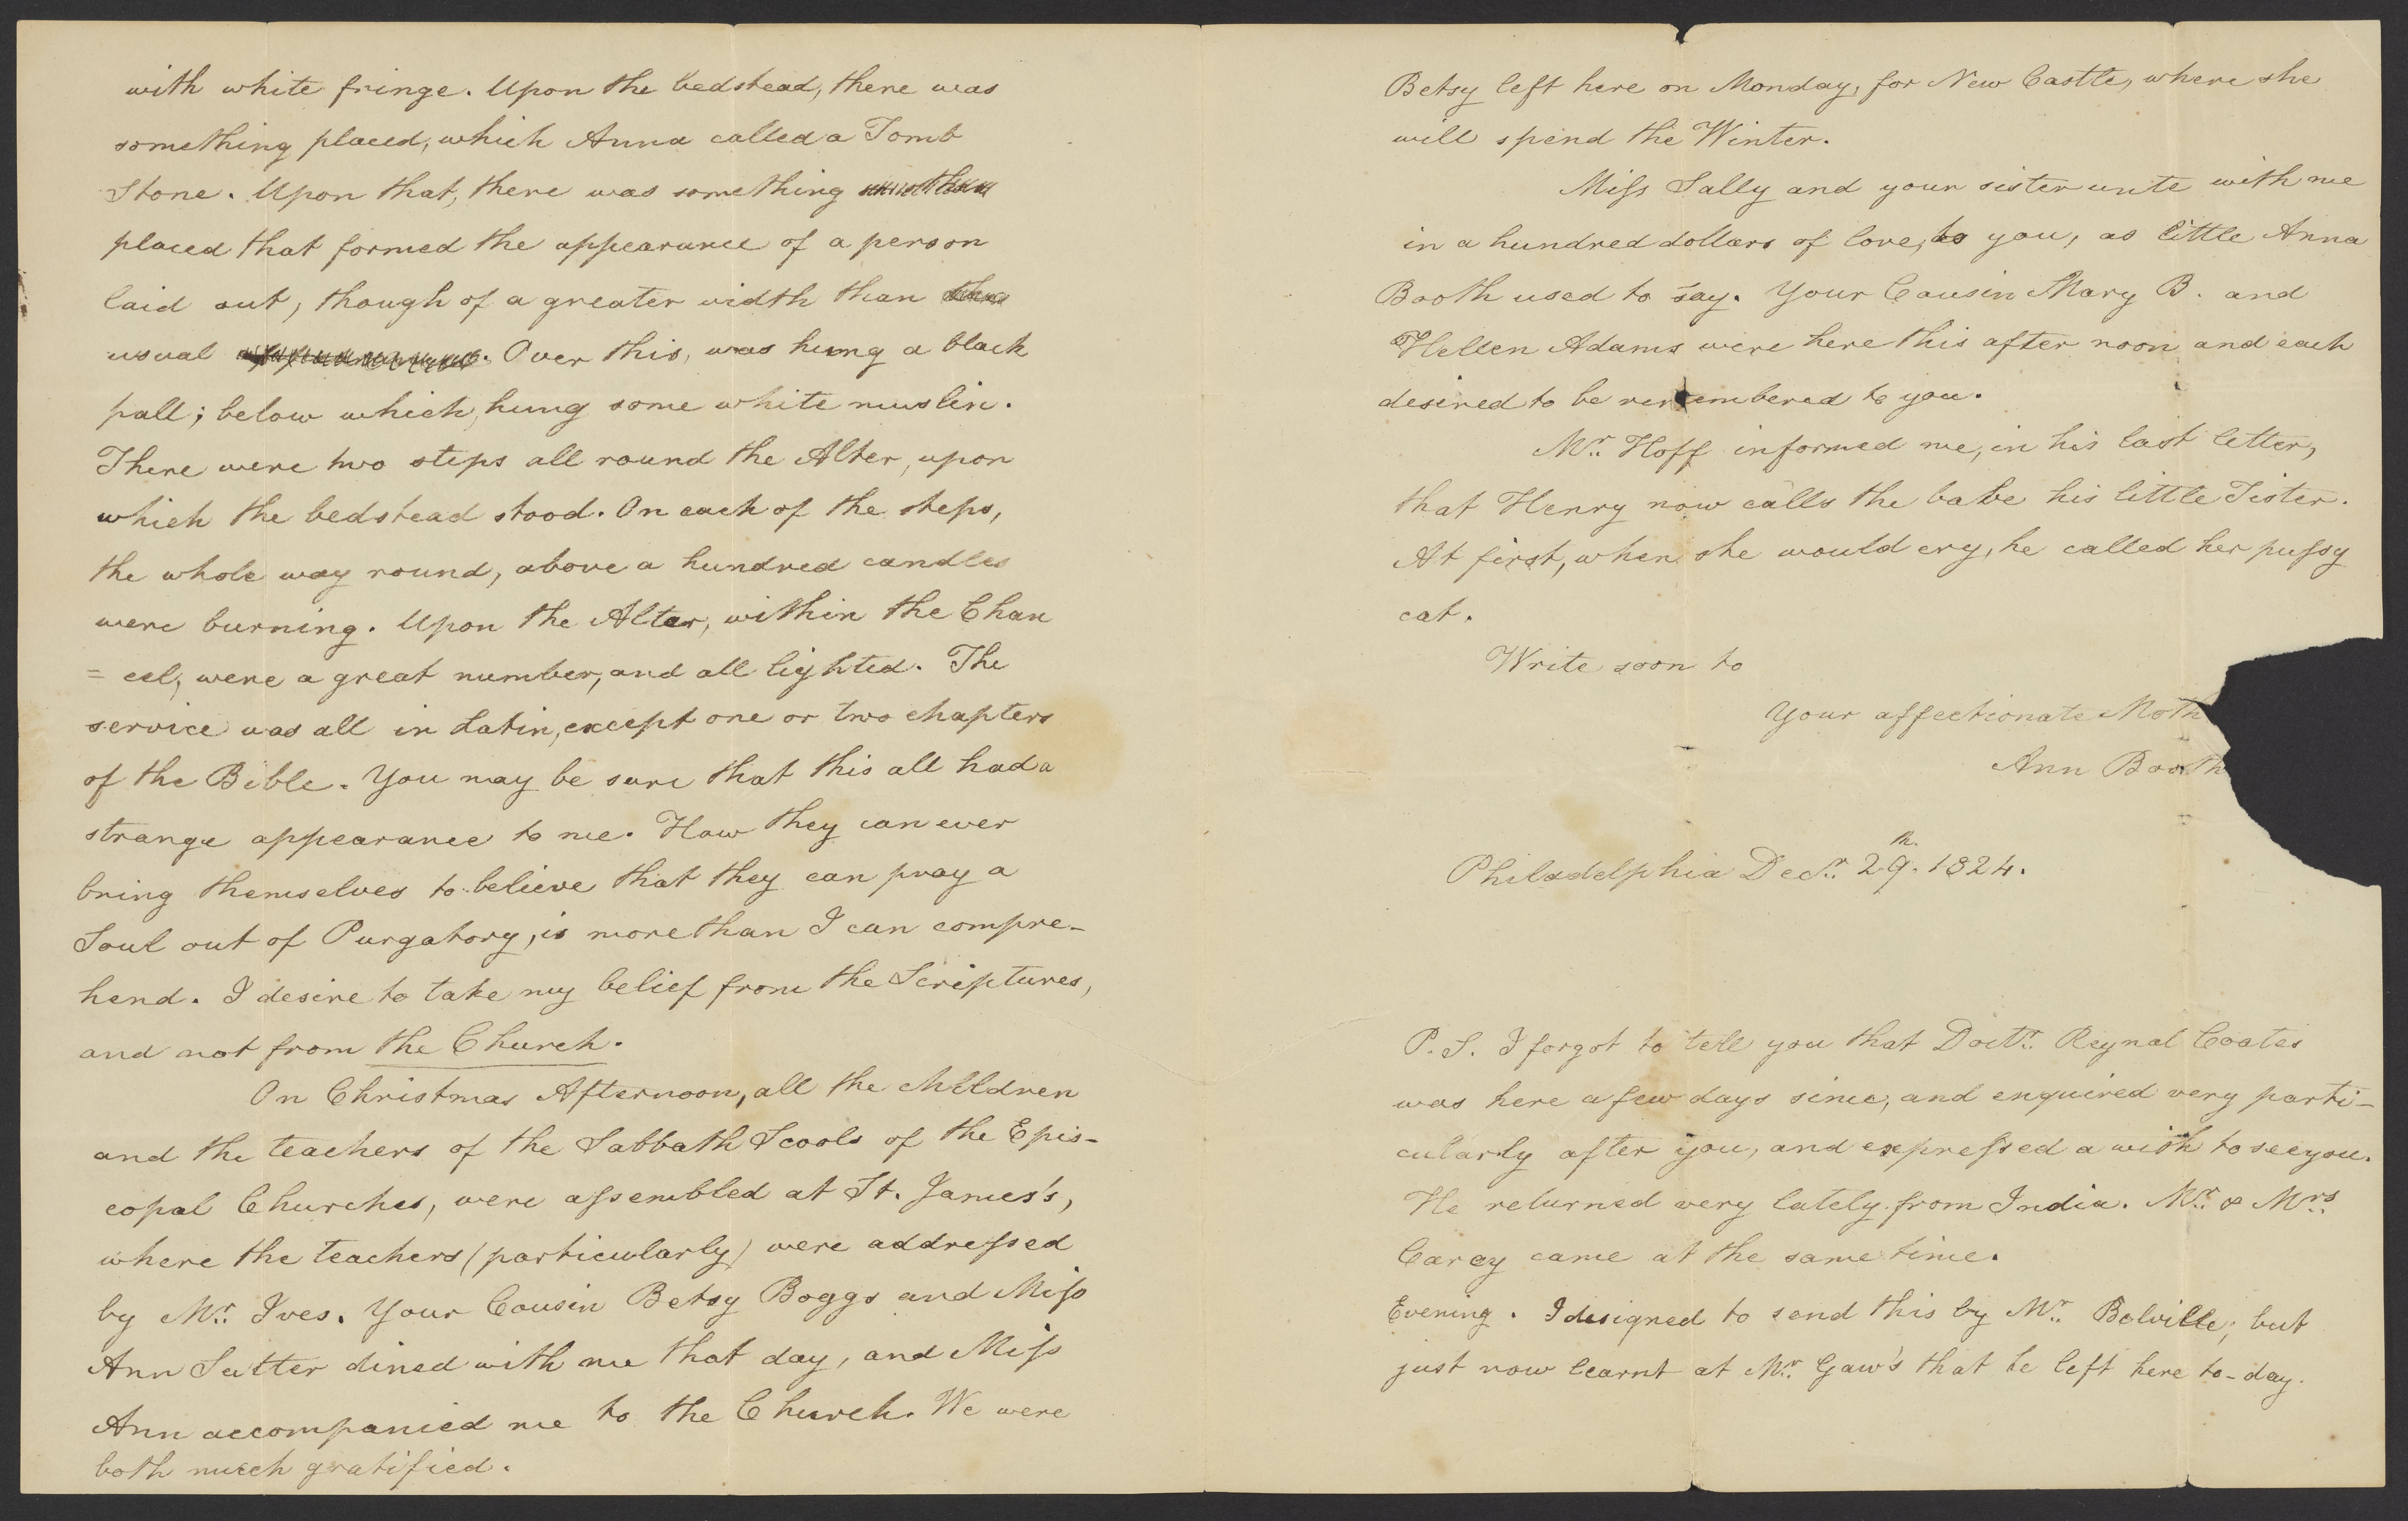 with white fringe. Upon the bedstead, there was
something placed, which Anna called a Tomb
Stone. Upon that, there was something
placed that formed the appearance of a person
laid out, though of a greater width than
usual . Over this, was hung a black
pall; below which, hung some white muslin.
There were two steps all round the Alter, upon
which the bedstead stood. On each of the steps,
the whole way round, above a hundred candles
were burning. Upon the Altar, within the Chan
= cel, were a great number, and all lighted. The
service was all in Latin, except one or two chapters
of the Bible. You may be sure that this all had a
strange appearance to me. How they can ever
bring themselves to believe that they can pray a
Soul out of Purgatory, is more than I can compre-
hend. I desire to take my belief from the Scriptures,
and not from the Church.
On Christmas Afternoon, all the children
and the teachers of the Sabbath Scools of the Epis-
copal Churches, were assembled at St. James's,
where the teachers (particularly) were addressed
by Mr. Ives. Your Cousin Betsy Boggs and Miss
Ann Sutter dined with me that day, and Miss
Ann accompanied me to the Church. We were
both much gratified.
Betsy left here on Monday, for New Castle, where she
will spend the Winter.
Miss Sally and your sister unite with me
in a hundred dollars of love, to you, as little Anna
Booth used to say. Your Cousin Mary B. and
Hellen Adams were here this after noon and each
desired to be remembered to you.
Mr. Hoff informed me, in his last letter,
that Henry now calls the babe his little Sister.
At first, when she would cry, he called her pussy
cat.
Write soon to
Your affectionate Moth
Ann Booth
Philadelphia Decr. 29th. 1824.
P.S. I forgot to tell you that Doctr. Reynal Coates
was here a few days since, and enquired very parti-
cularly after you, and expressed a wish to see you.
He returned very lately from India. Mr. & Mrs.
Carey came at the same time.
Evening. I designed to send this by Mr. Belville; but
just now learnt at Mr. Gaw's that he left here to-day.